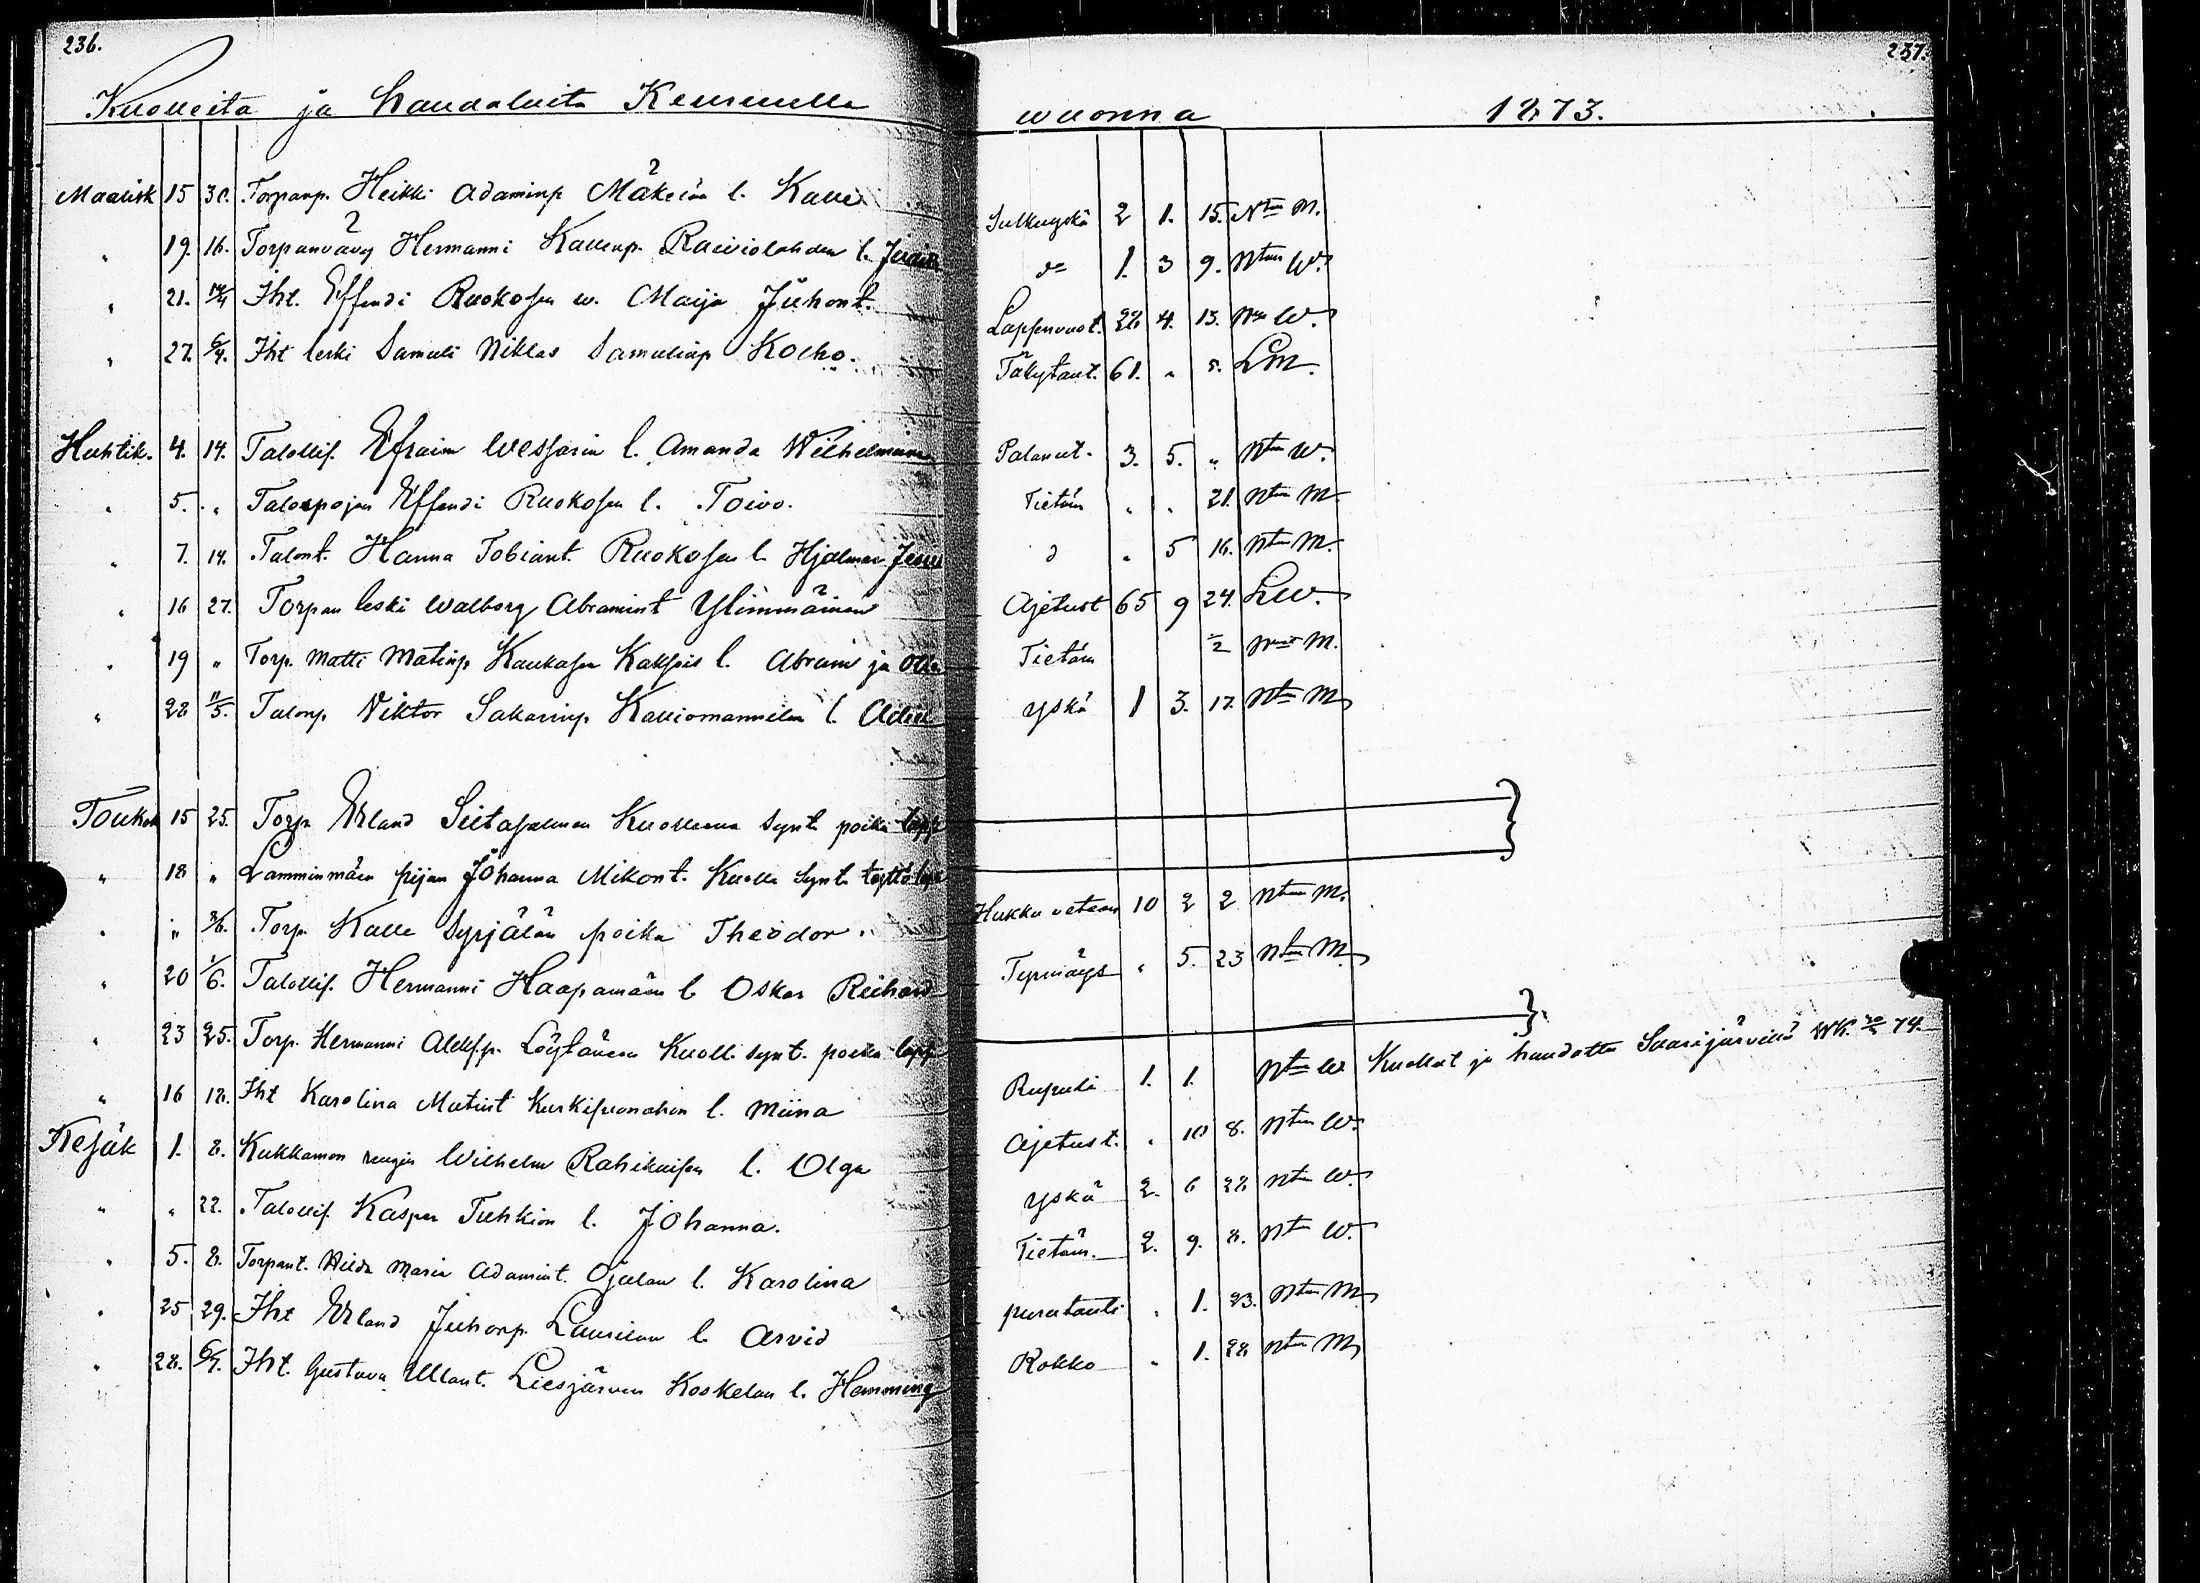 236. 237.
Kuolleita ja haudaluita Keuruulla wuonna 1873.
Maalisk 15 30. Torpanp. Heikki Adaminp Mäkelän l. Kalle Sulkuyskä 2 1. 15. Ntön M.
" 19. 16. Torpanvävy Hermanni Kallenp. Raiviolahden l. d:o 1. 3 9. Ntön W.
" 21. Iht. Effendi Ruokosen w. Maija Juhont. Lapsenvuot. 28 4. 13. W.
" 27. 6/4. Iht leski Samuli Niklas Samulinp Kolho. Täkytaut. 61. " 5. LM.
Huhtik. 4. 14. Talollis. Efraim Wessarin l. Amanda Wilhelmiina Palanut. 3. 5. " Ntön W.
" 5. " Talonpojan Effendi Ruokosen l. Toivo. Tietäm " " 21. Ntön M
" 7. 14. Talont. Hanna Tobiant. Ruokosen l. Hjalmar d " 5 16. Ntön M.
" 16 27. Torpan leski Walborg Abramint Ylimmäinen Ajetust 65 9 24. LW.
" 19 " Torp. Matti Matinp Kaukasen Kaksois l. Abram ja Otto Tietäm 1/2 M.
" 28 11/5. Talonp Viktor Sakarinp. Kalliomannilan l. Yskä 1 3. 17. Ntön M
Toukok 15 25. Torp Erland Siitasalmen Kuolleena synt. poika laps
" 18 " Lamminmäen pijan Johanna Mikont. Kuoll. synt. tyttö laps
" " 3/6. Torp Kalle Syrjälän poika Theodor. Hukku veteen 10 2 2 Ntön M.
" 20 1/6. Talollis. Hermanni Haapamäen l. Oskar Richard " 5. 23 Ntön M
" 23 25. Torp. Hermanni Aleks.p. Löytänen Kuoll. synt. poika laps
" 16 18. Iht Karolina Matint Kurkisuonahon l. Miina Rupuli 1. 1. Ntön W Kuollut ja haudattu Saarijärvellä 74.
Kesäk 1. 8. Kukkamon rengin Wilhelm Rahikaisen l. Olga Ajetust. " 10 8. Ntön W.
" " 22. Talollis Kasper Tuhkion l. Johanna. Yskä 2. 6 28 Ntön W.
" 5. 8. Torpant. Hilda Maria Adamint. Ojalan l. Karolina Tietäm. 2. 9. 8. Ntön W.
" 25 29. Iht Erland Juhonp. Laurilan l. Arvid purutauti " 1. 23. Ntön M
" 28. 6/7. Iht. Gustava Ullant. Liesjärven Koskelan l. Hemming Rokko " 1. 28 Ntön M